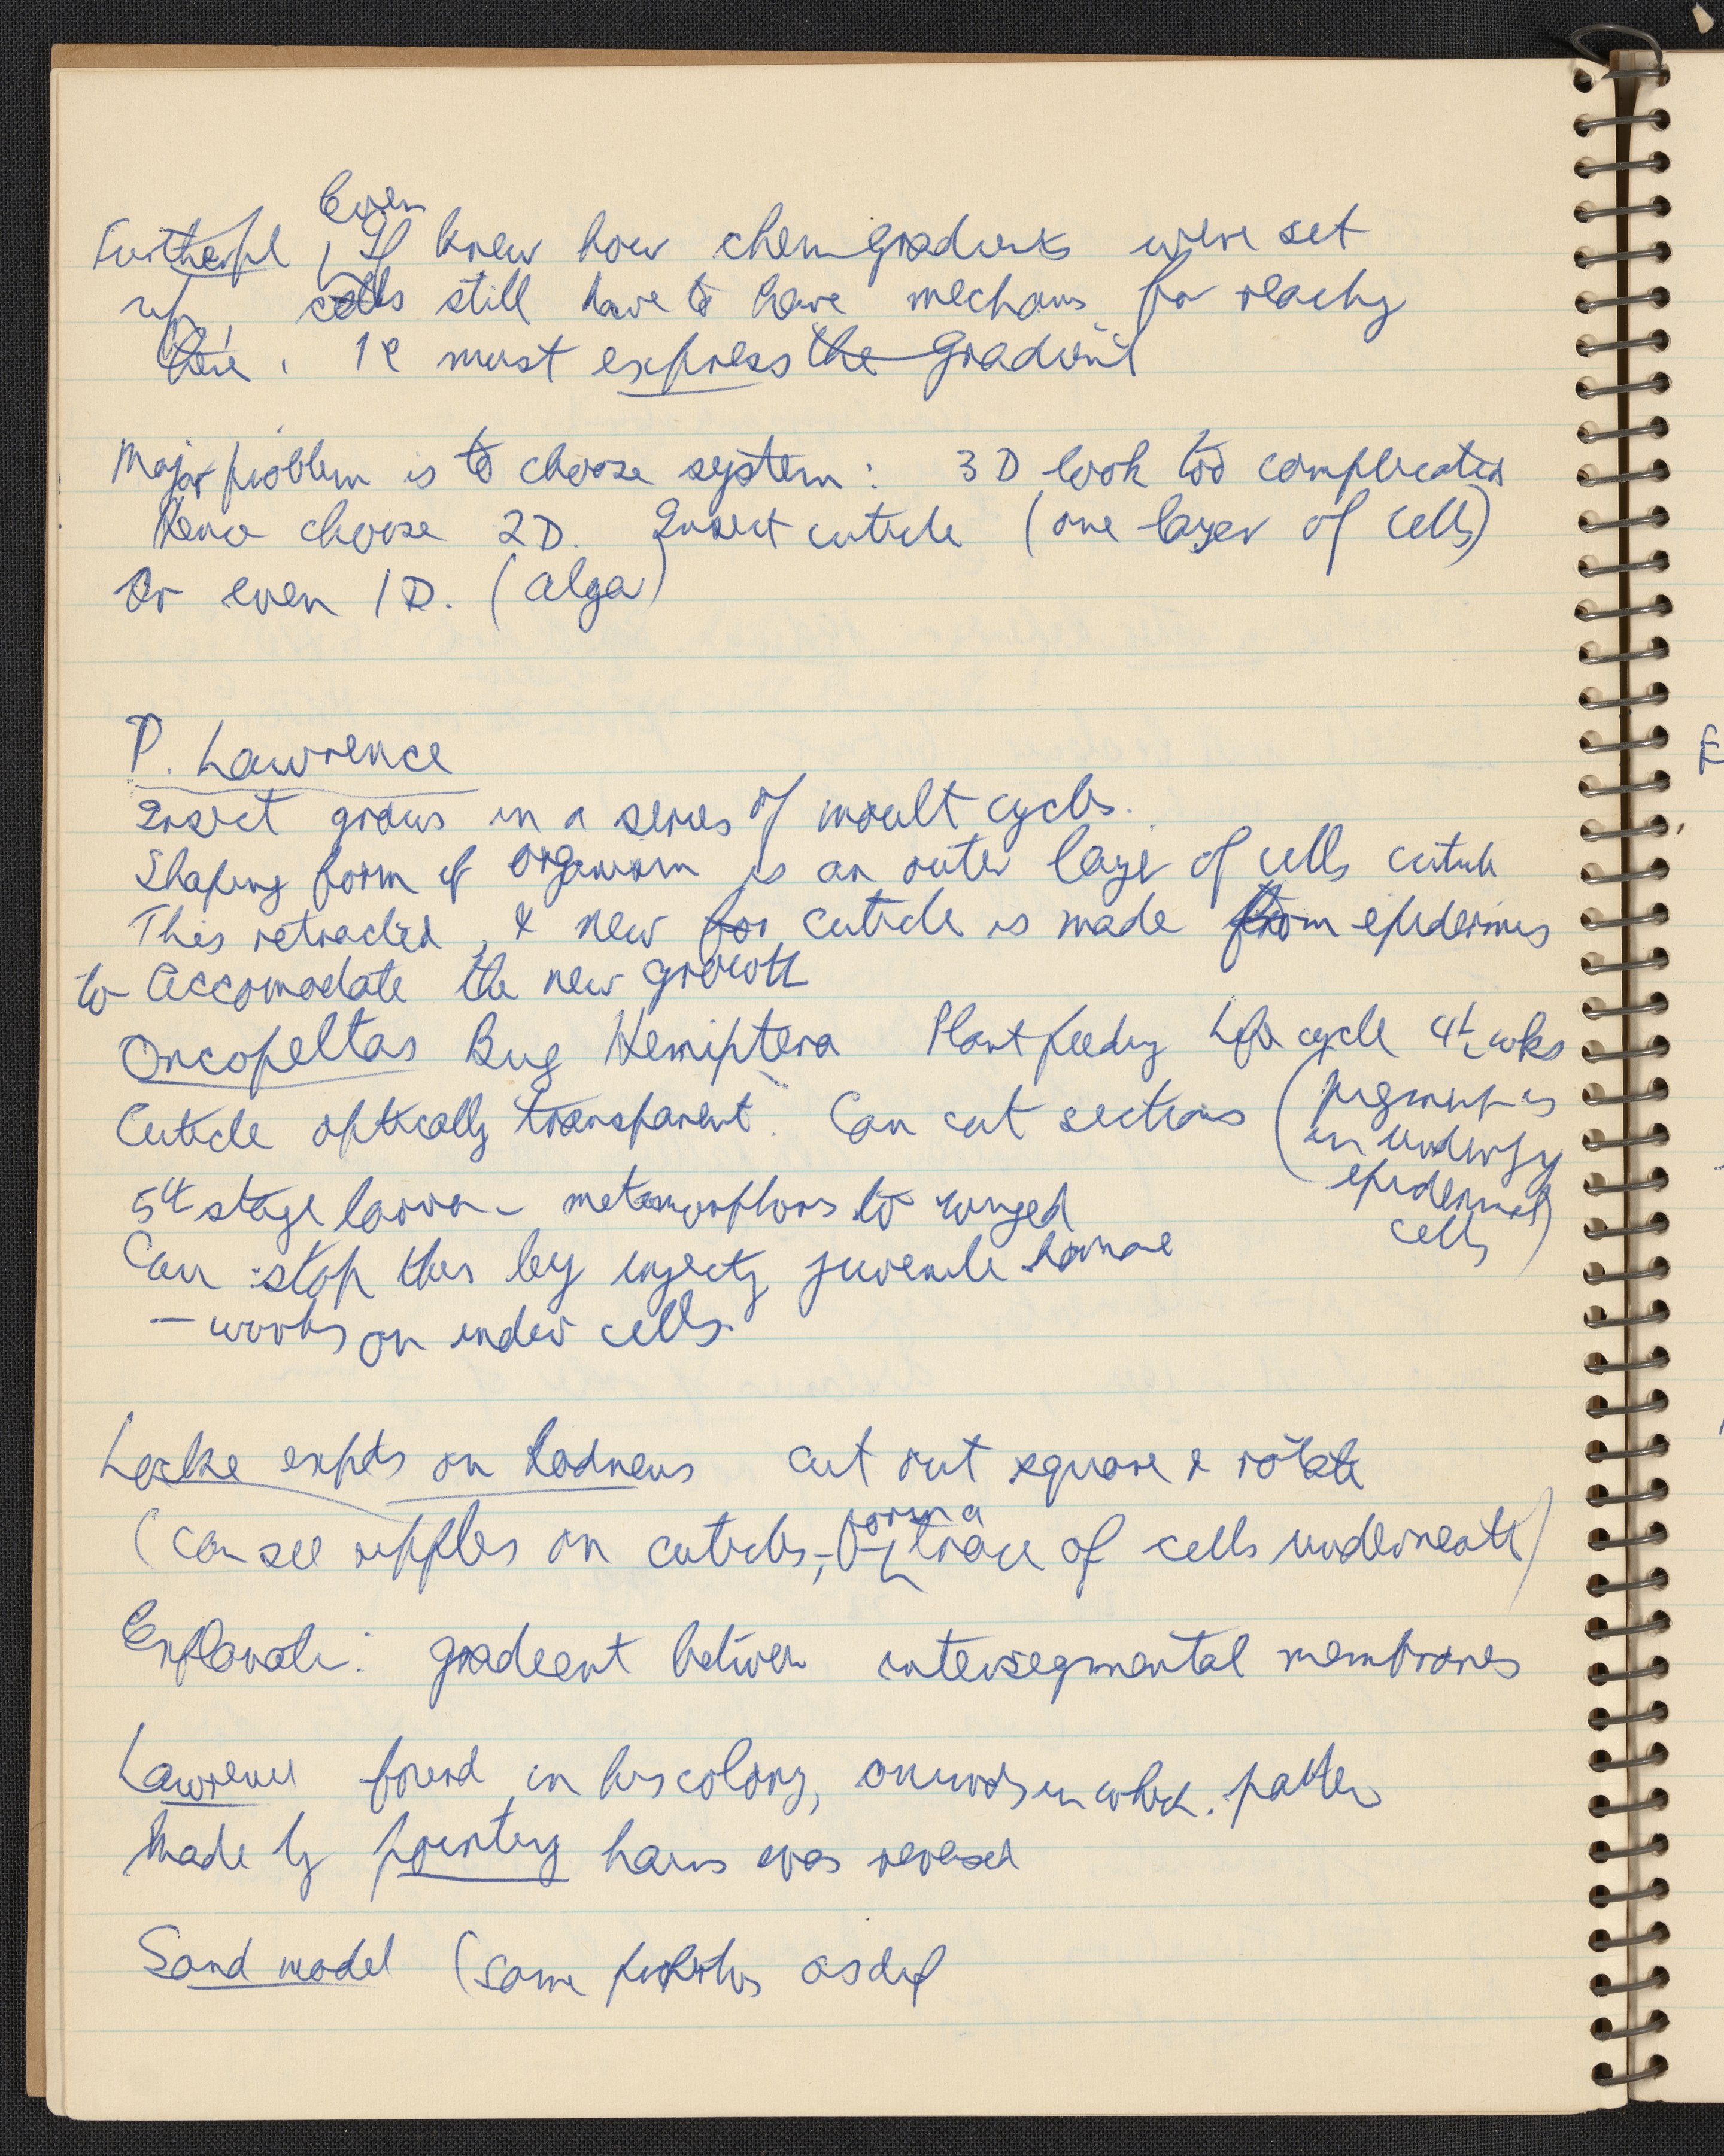 Even
Further pt, If knew how chem gradients were set
up, cells still have to have mechans for reacting
here. ie must express the gradient
Major problem is to choose system: 3D look too complicated
Hence choose 2D. Insect cuticle (one layer of cells)
Or even 1D. (alga)
P. Lawrence
Insect grows in a series of moult cycles.
Shaping form of organism is an outer layer of cells cuticle
This retracted, & new for cuticle is made from epidermis
to accomodate the new growth
Oncopeltas Bug Hemiptera Plant feeding Life cycle 4½ wks
Cuticle optically transparent. Can cut sections (pigment is
in underlyg
epidermal
cells)
5th stage larva - metamorphos to winged
Can stop this by injectg juvenile hormone
- works on indiv cells.
Locke expts on Rodneus cut out square & rotate
(can see ripples on cuticles, - form a trace of cells underneath)
Explanatn: gradient between intersegmental membranes
Lawrence found in his colony, animals in which pattern
made by pointing hairs was reversed
Sand model (same properties as